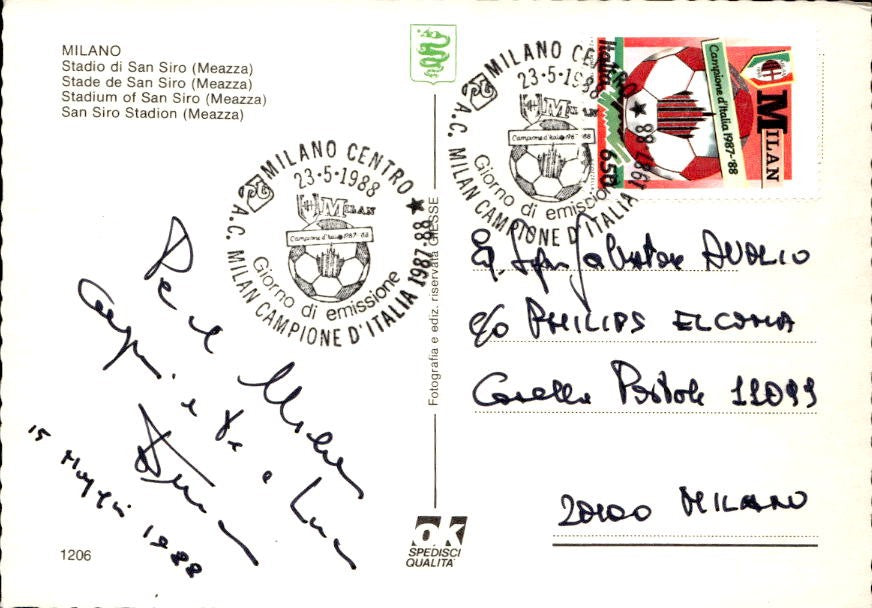 MILANO
Stadio di San Siro (Meazza)
Stade de San Siro (Meazza)
Stadium of San Siro (Meazza)
San Siro Stadion (Meazza)
MILANO CENTRO
23·5·1988
MILAN
Campione d'Italia 1987-'88
Giorno di emissione
A.C. MILAN CAMPIONE D'ITALIA 1987-88
MILANO CENTRO
23·5·1988
MILAN
Campione d'Italia 1987-'88
Giorno di emissione
A.C. MILAN CAMPIONE D'ITALIA 1987-88
Italia
650
Campione d'Italia 1987-'88
MILAN
Salvatore AVOLIO
c/o PHILIPS ELCOMA
Casella Postale 11099
20100 MILANO
Fotografia e ediz. riservata GIESSE
15 Maggio 1988
1206
ok
SPEDISCI
QUALITA'